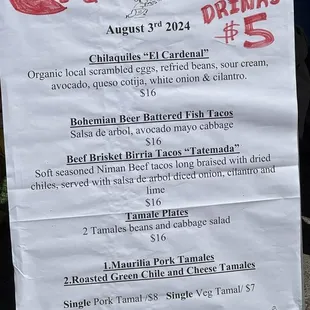 DRINKS
$5
August 3rd 2024
Chilaquiles “El Cardenal”
Organic local scrambled eggs, refried beans, sour cream,
avocado, queso cotija, white onion & cilantro.
$16
Bohemian Beer Battered Fish Tacos
Salsa de arbol, avocado mayo cabbage
$16
Beef Brisket Birria Tacos “Tatemada”
Soft seasoned Niman Beef tacos long braised with dried
chiles, served with salsa de arbol diced onion, cilantro and
lime
$16
Tamale Plates
2 Tamales beans and cabbage salad
$16
1.Maurilia Pork Tamales
2.Roasted Green Chile and Cheese Tamales
Single Pork Tamal /$8 Single Veg Tamal/ $7